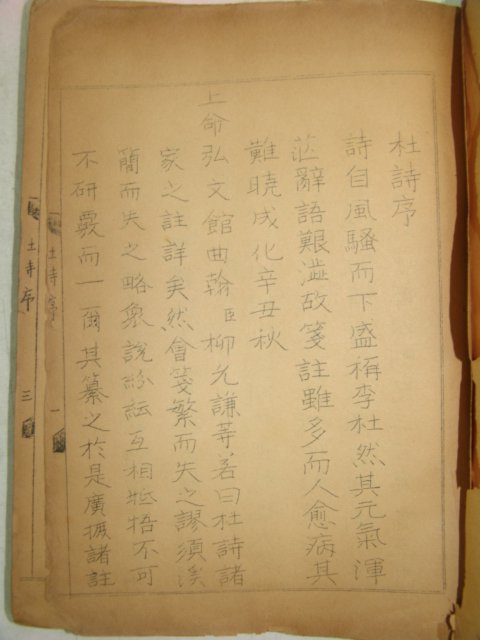 杜詩序
詩自風騷而下盛稱李杜然其元氣渾
茫辭語艱澁故箋註雖多而人愈病其
難曉成化辛丑秋
上命弘文館典翰臣柳允謙等若曰杜詩諸
家之註詳矣然會箋繁而失之謬須溪
簡而失之略衆說紛紜互相牴牾不可
不研覈而一爾其纂之於是廣摭諸註
杜詩序 一
杜詩序 三